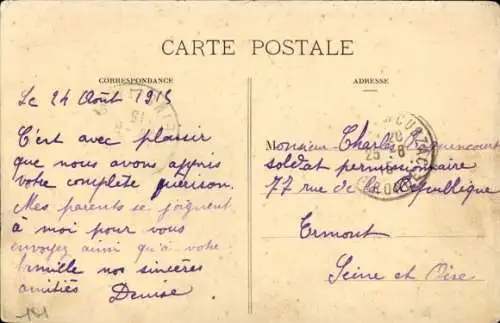 CARTE POSTALE
CORRESPONDANCE
Le 24 Août 1915
C'est avec plaisir
que nous avons appris
votre complète guérison.
Mes parents se joignent
à moi pour vous
envoyez ainsi qu'à votre
famille nos sincères
amitiés Denise
ADRESSE
Monsieur Charles
soldat permissionnaire
77 rue de la République
Ermont
Seine et Oise